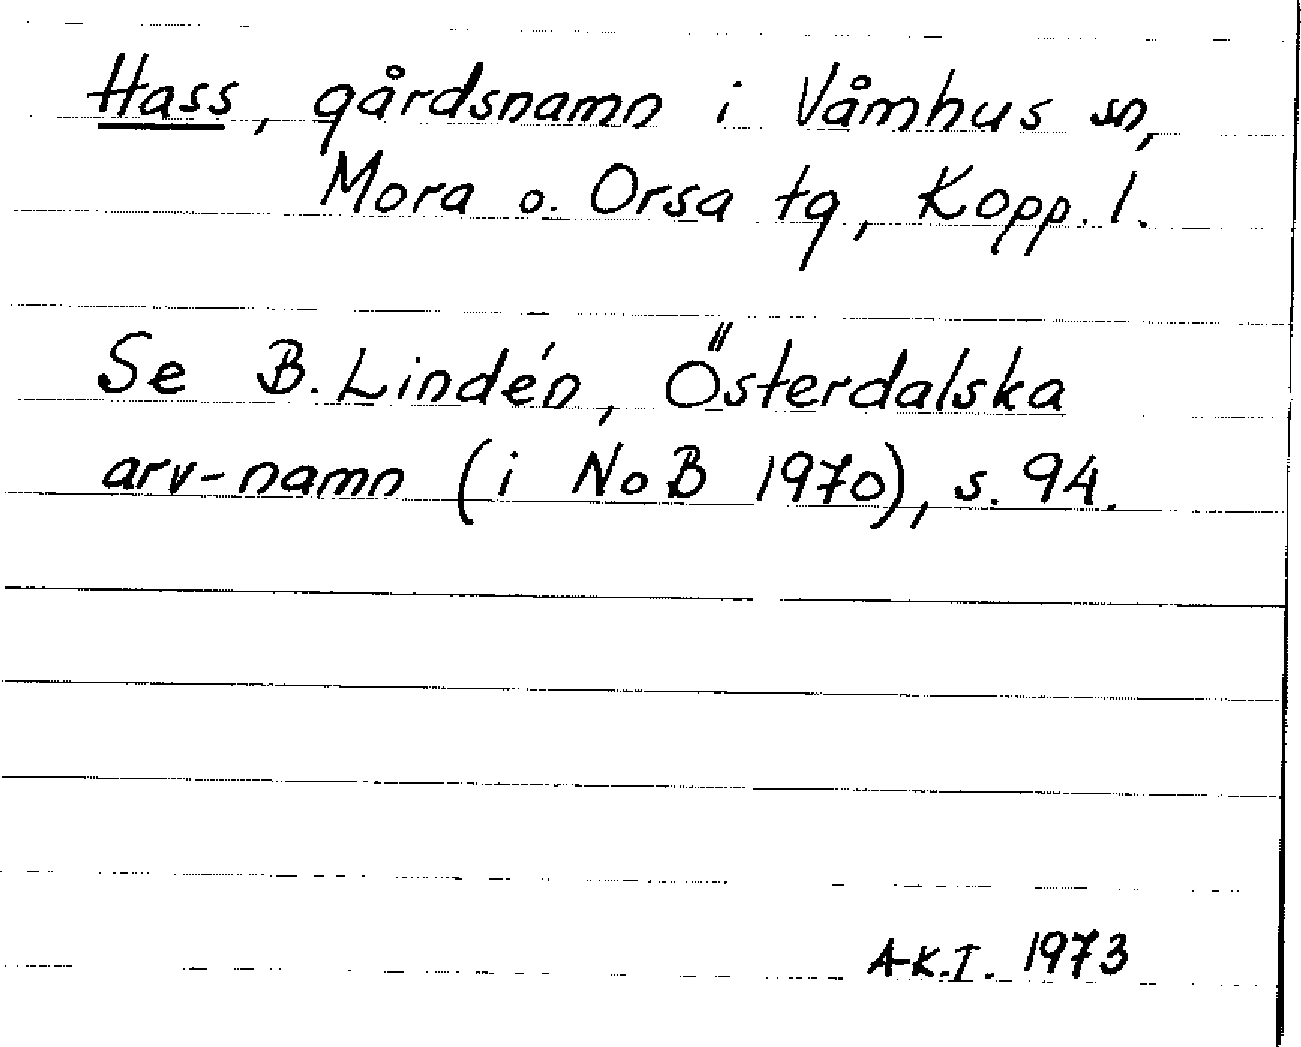 Hass, gårdsnamn i Våmhus sn,
Mora o. Orsa tg, Kopp. l.
Se B. Lindén, Österdalska
arv-namn (i NoB 1970), s. 94.
A-K.I. 1973